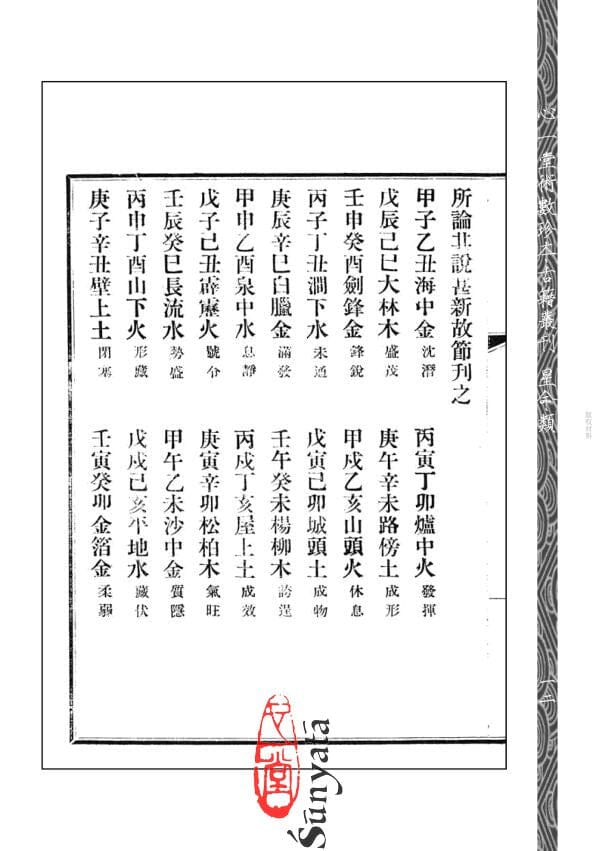 所論其說甚新故節刊之
甲子乙丑海中金 沈潛 丙寅丁卯爐中火 發揮
戊辰己巳大林木 盛茂 庚午辛未路傍土 成形
壬申癸酉劍鋒金 鋒銳 甲戌乙亥山頭火 休息
丙子丁丑澗下水 未通 戊寅己卯城頭土 成物
庚辰辛巳白臘金 滿發 壬午癸未楊柳木 誇逞
甲申乙酉泉中水 息靜 丙戌丁亥屋上土 成效
戊子己丑霹靂火 號令 庚寅辛卯松柏木 氣旺
壬辰癸巳長流水 勢盛 甲午乙未沙中金 質隱
丙申丁酉山下火 形藏 戊戌己亥平地水 藏伏
庚子辛丑壁上土 閉塞 壬寅癸卯金箔金 柔弱
心一堂術數珍本古籍叢刊 星命類
一二
版权材料
心一堂
Śūnyatā